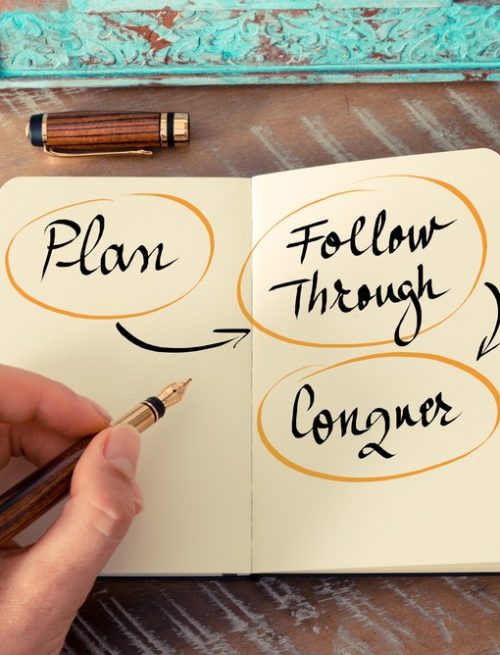 Plan
Follow
Through
Conquer